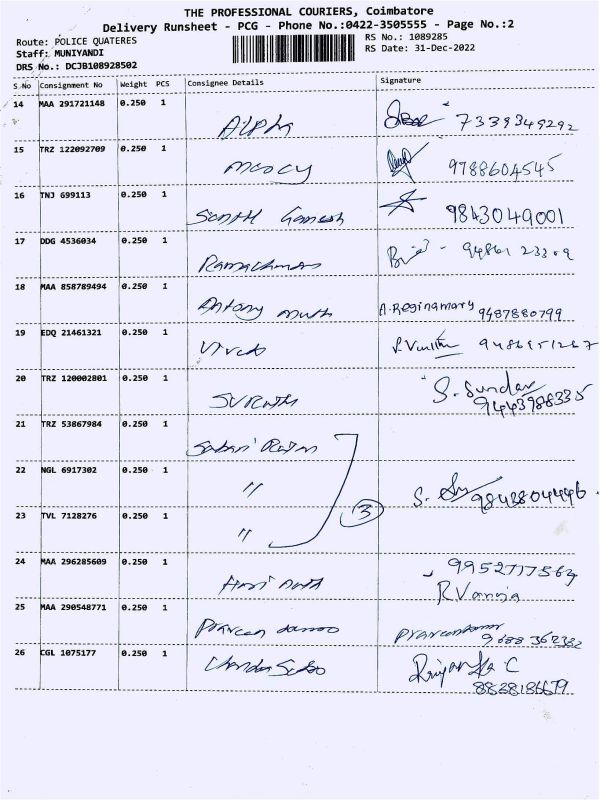 THE PROFESSIONAL COURIERS, Coimbatore
Delivery Runsheet - PCG - Phone No.:0422-3505555 - Page No.:2
Route: POLICE QUATERES
RS No.: 1089285
Staff: MUNIYANDI
RS Date: 31-Dec-2022
DRS No.: DCJB108928502
S No Consignment No Weight PCS Consignee Details Signature
14 MAA 291721148 0.250 1 Alpha 7339349292
15 TRZ 122092709 0.250 1 9788604545
16 TNJ 699113 0.250 1 Ganesh 9843049001
17 DDG 4536034 0.250 1
18 MAA 858789494 0.250 1 Antony Muth A.Reginamary 9487880799
19 EDQ 21461321 0.250 1
20 TRZ 120002801 0.250 1 S. Sundar
9443988335
21 TRZ 53867984 0.250 1
22 NGL 6917302 0.250 1 " S. 9843804446
23 TVL 7128276 0.250 1 " 3
24 MAA 296285609 0.250 1 9952717564
R Vannia
25 MAA 290548771 0.250 1 Praveenkumar
9688362322
26 CGL 1075177 0.250 1 Priyanka C
8828186679